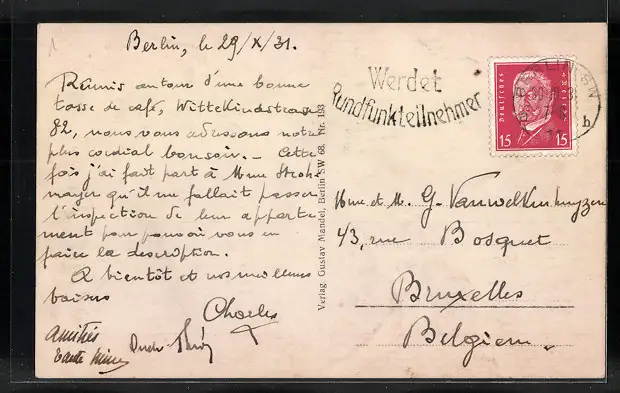 Berlin, le 29/X/31.
Réunis autour d'une bonne
tasse de café, Wittekindstrasse
82, nous vous adressons notre
plus cordial bonsoir. — Cette
fois j'ai fait part à Mme Stroh-
mayer qu'il me fallait passer
l'inspection de leur apparte-
ment pour pouvoir vous en
faire la description.
A bientôt et nos meilleurs
baisers
Charles
Amitiés
Tante
Verlag Gustav Mandel, Berlin SW 68. Nr. 133
Werdet
Rundfunkteilnehmer
BERLIN
b
Deutsches Reich
15 15
Mme et M. G.
43, rue Bosquet
Bruxelles
Belgien.